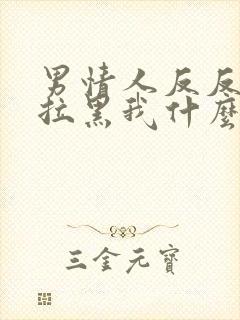 男情人反反
拉黑我什麼
三金元寶